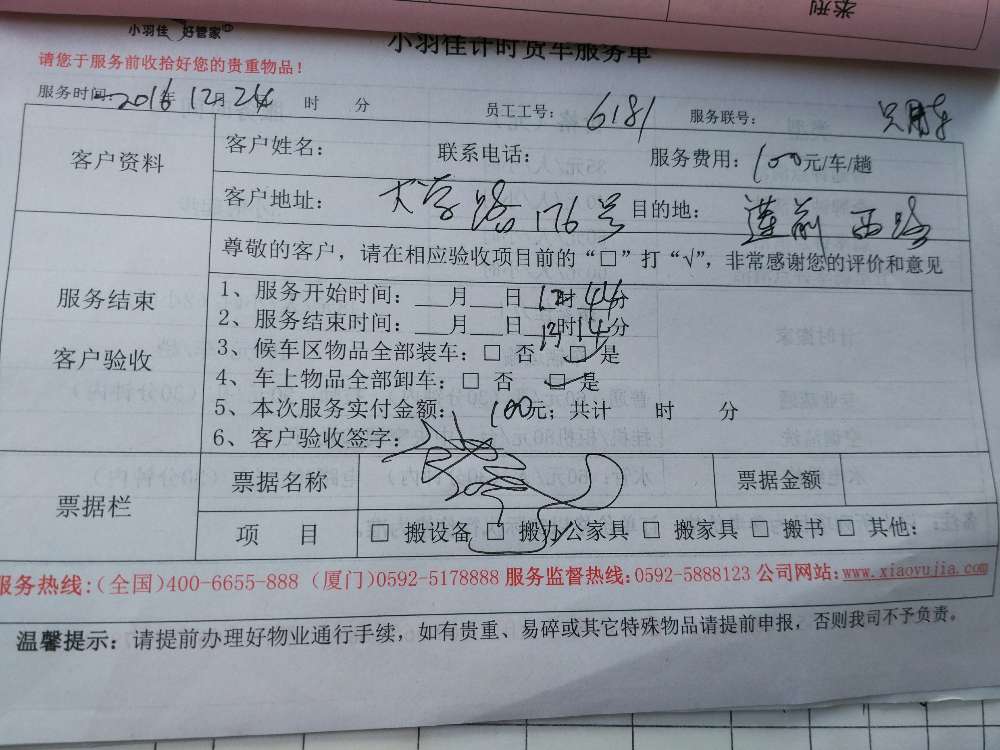 类型
小羽佳 好管家
小羽佳计时货车服务单
请您于服务前收拾好您的贵重物品！
服务时间：2016年12月24日 时 分 员工工号：6181 服务联号： 只用车
客户资料 客户姓名： 联系电话： 服务费用：100元/车/趟
客户地址：大学路176号 目的地：莲前西路
尊敬的客户，请在相应验收项目前的“□”打“√”，非常感谢您的评价和意见
服务结束
客户验收
1、服务开始时间：__月__日12时44分
2、服务结束时间：__月__日13时14分
3、候车区物品全部装车：□ 否 ☑ 是
4、车上物品全部卸车：□ 否 ☑ 是
5、本次服务实付金额：100元；共计 时 分
6、客户验收签字：
票据栏 票据名称 票据金额
项 目 □ 搬设备 □ 搬办公家具 □ 搬家具 □ 搬书 □ 其他：
服务热线：(全国)400-6655-888 (厦门)0592-5178888 服务监督热线：0592-5888123 公司网站：www.xiaoyujia.com
温馨提示：请提前办理好物业通行手续，如有贵重、易碎或其它特殊物品请提前申报，否则我司不予负责。